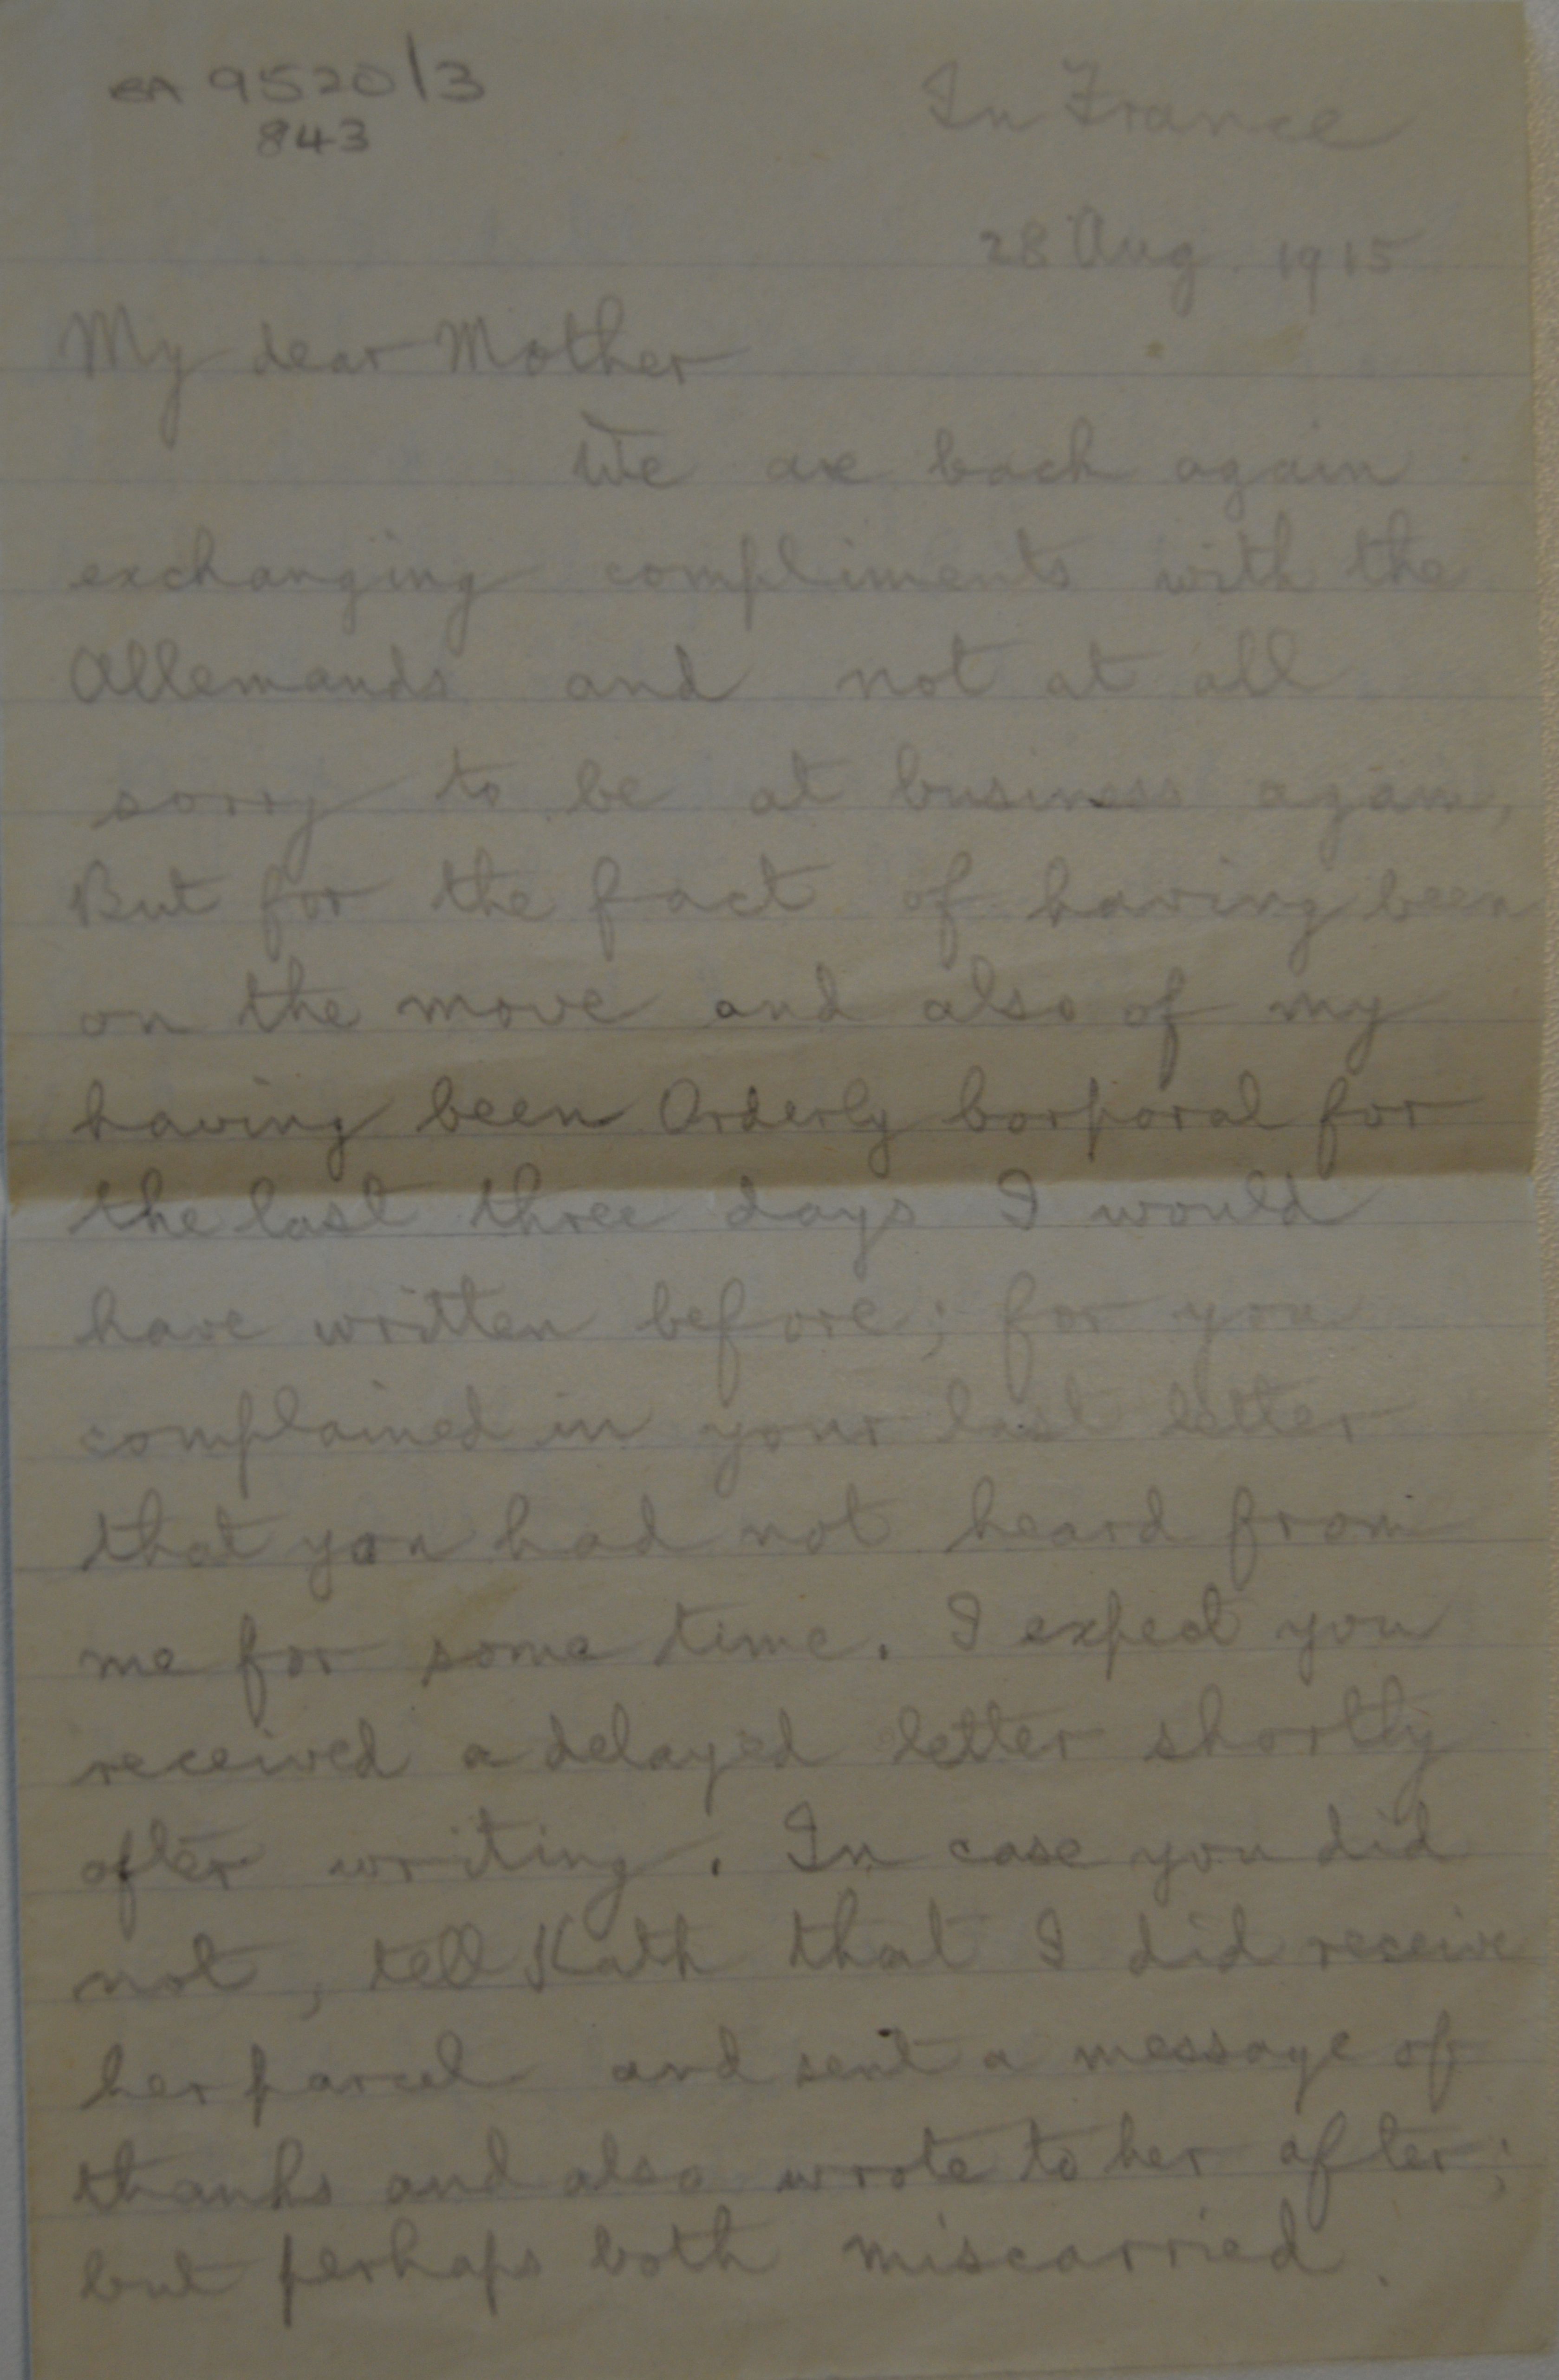 en 9520/3
843
In France
28 Aug. 1915
My dear Mother
We are back again
exchanging compliments with the
Allemands and not at all
sorry to be at business again,
But for the fact of having been
on the move and also of my
having been Orderly Corporal for
the last three days I would
have written before; for you
complained in your last letter
that you had not heard from
me for some time. I expect you
received a delayed letter shortly
after writing. In case you did
not, tell Kath that I did receive
her parcel and sent a message of
thanks and also wrote to her after;
but perhaps both miscarried.